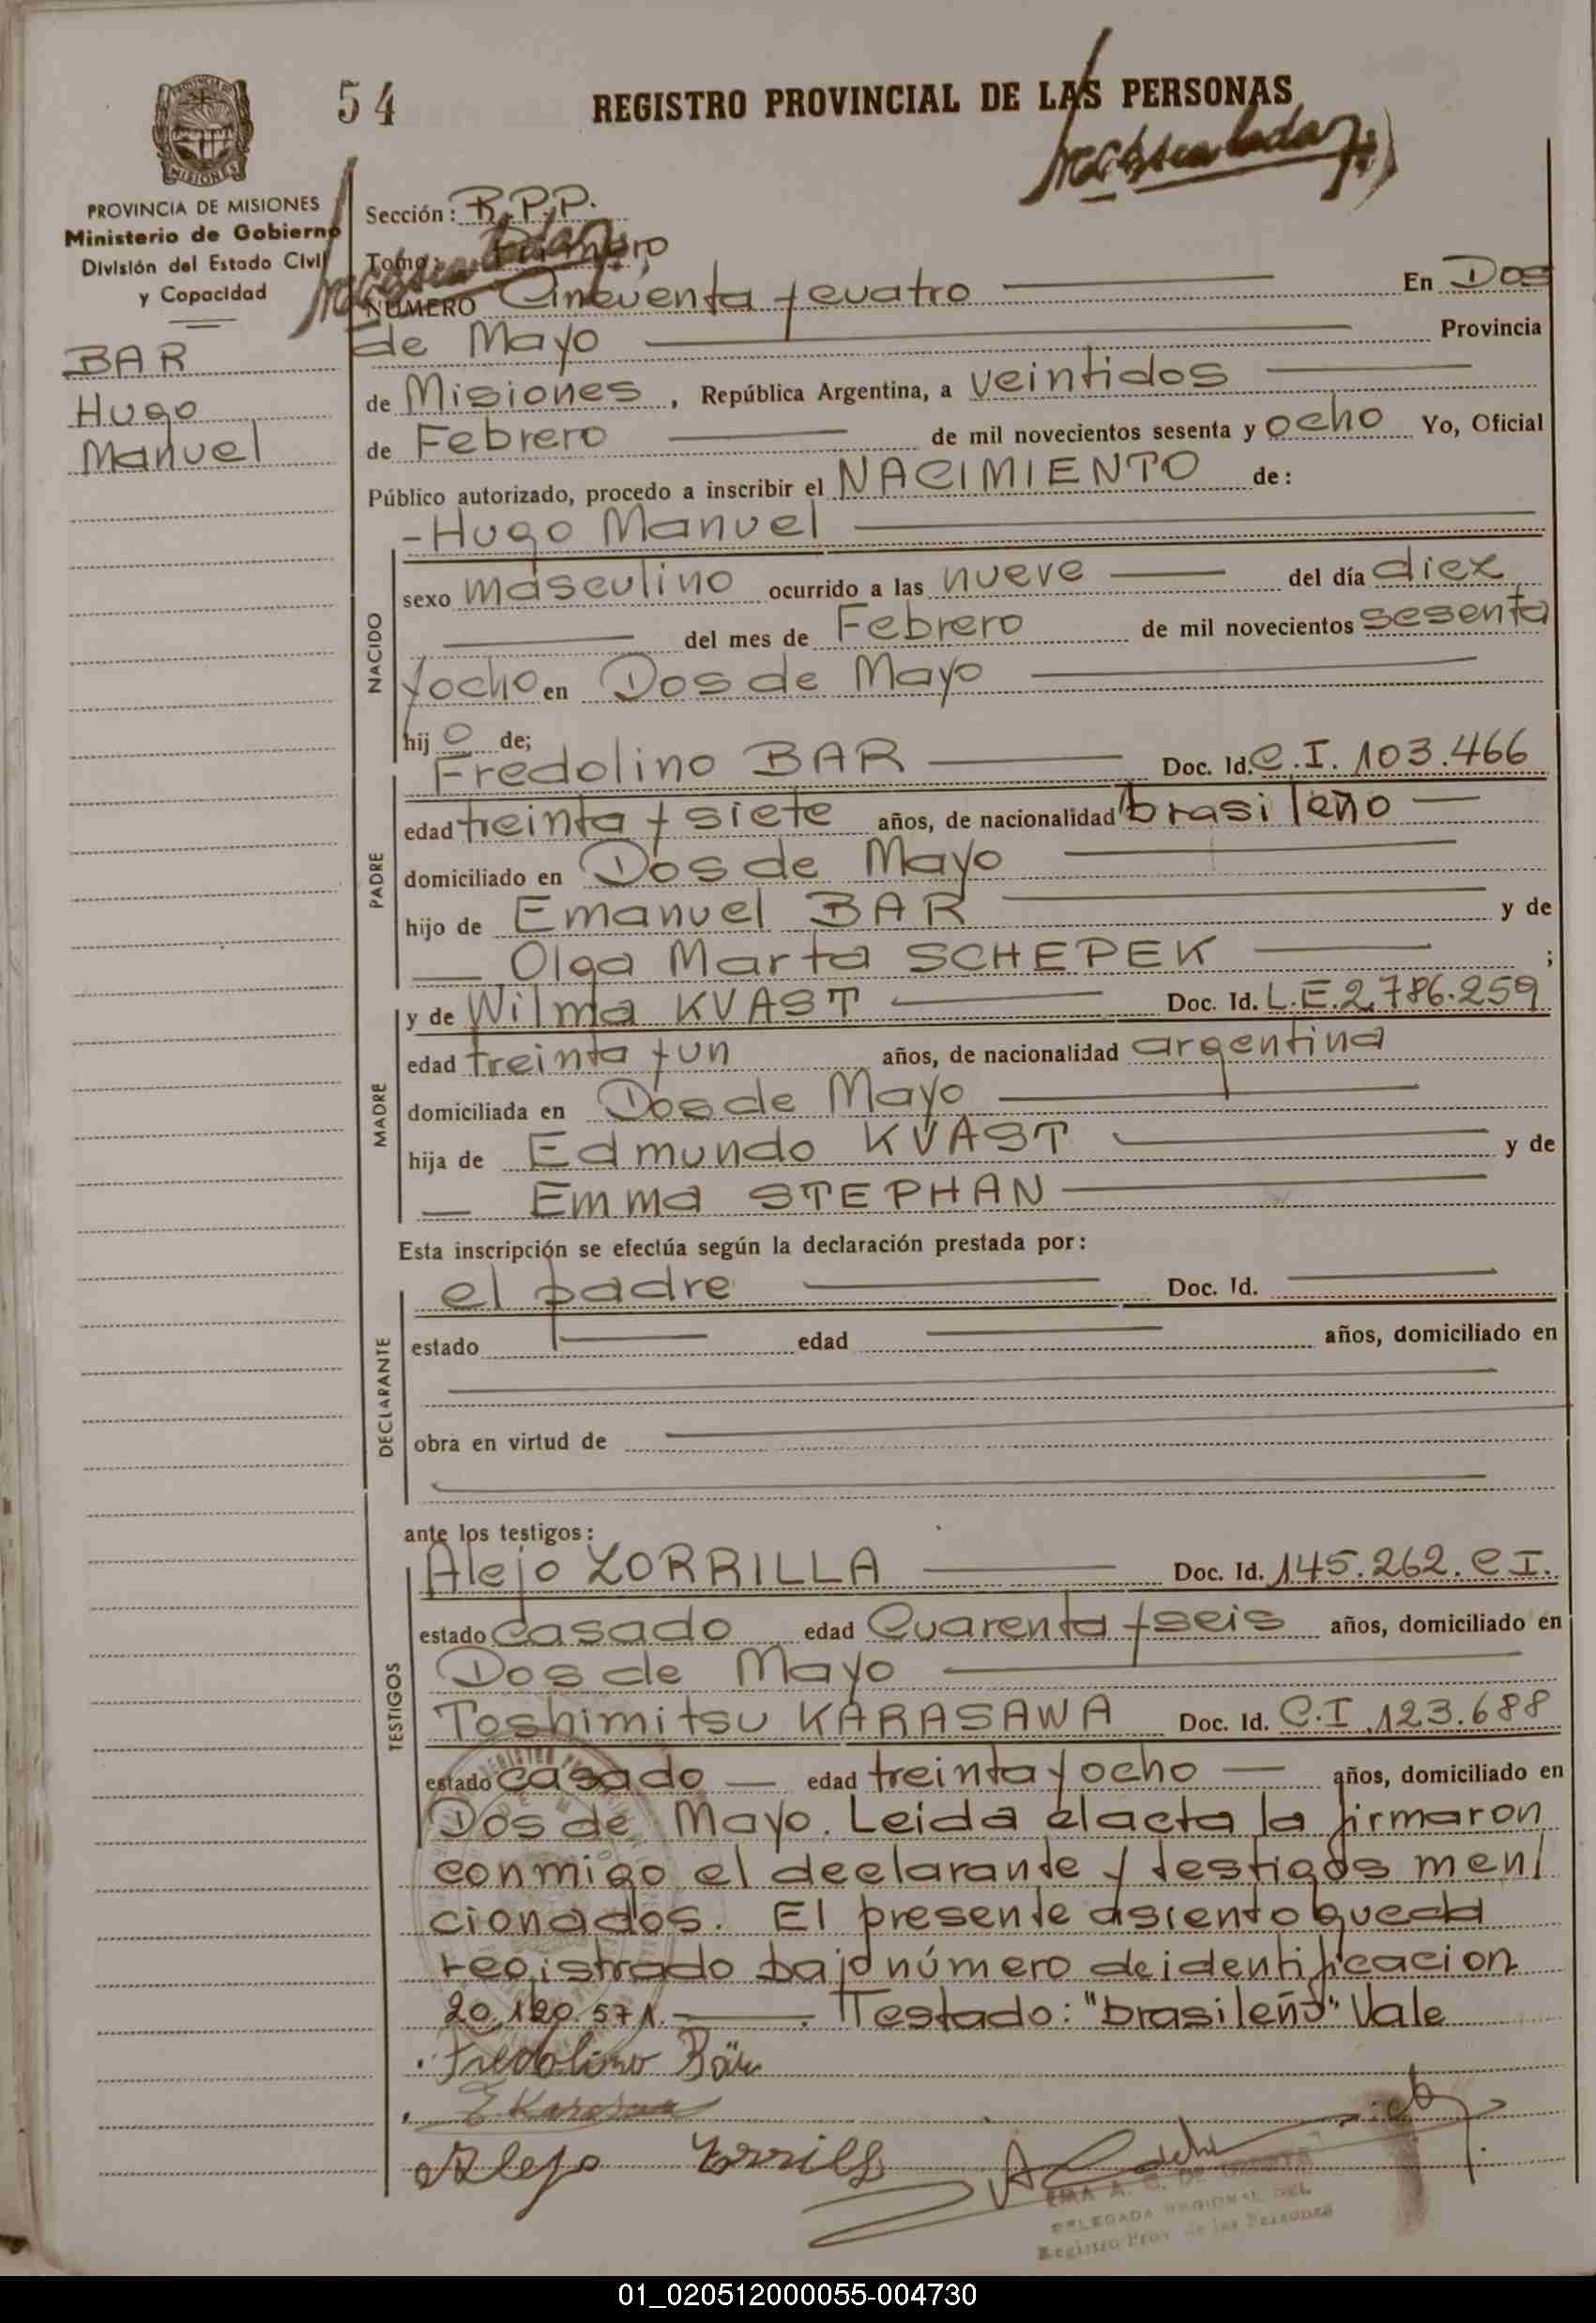 54
REGISTRO PROVINCIAL DE LAS PERSONAS
MISIONES
PROVINCIA DE MISIONES
Ministerio de Gobierno
División del Estado Civil
y Capacidad
BAR
Hugo
Manuel
Sección: R.P.P.
Tomo: Primero
NÚMERO Cincuenta y cuatro En Dos
de Mayo Provincia
de Misiones, República Argentina, a veintidos
de Febrero de mil novecientos sesenta y ocho Yo, Oficial
Público autorizado, procedo a inscribir el NACIMIENTO de:
NACIDO
-Hugo Manuel
sexo masculino ocurrido a las nueve del día diez
del mes de Febrero de mil novecientos sesenta
y ocho en Dos de Mayo
hijo de;
PADRE
Fredolino BAR Doc. Id. C.I. 103.466
edad treinta y siete años, de nacionalidad brasileño
domiciliado en Dos de Mayo
hijo de Emanuel BAR y de
Olga Marta SCHEPEK ;
MADRE
y de Wilma KVAST Doc. Id. L.E. 2.786.259
edad treinta y un años, de nacionalidad argentina
domiciliada en Dos de Mayo
hija de Edmundo KVAST y de
Emma STEPHAN
Esta inscripción se efectúa según la declaración prestada por:
DECLARANTE
el padre Doc. Id.
estado edad años, domiciliado en
obra en virtud de
ante los testigos:
TESTIGOS
Alejo ZORRILLA Doc. Id. 145.262. C I.
estado casado edad Cuarenta y seis años, domiciliado en
Dos de Mayo
Toshimitsu KARASAWA Doc. Id. C.I. 123.688
estado casado edad treinta y ocho años, domiciliado en
Dos de Mayo. Leida el acta la firmaron
conmigo el declarante y testigos men/
cionados. El presente asiento queda
registrado bajo número de identificacion
20.120.571. Testado: "brasileño" Vale
Fredolino Bär
Alejo Zorrilla
DELEGADA REGIONAL DEL
Registro Prov. de las Personas
01_020512000055-004730